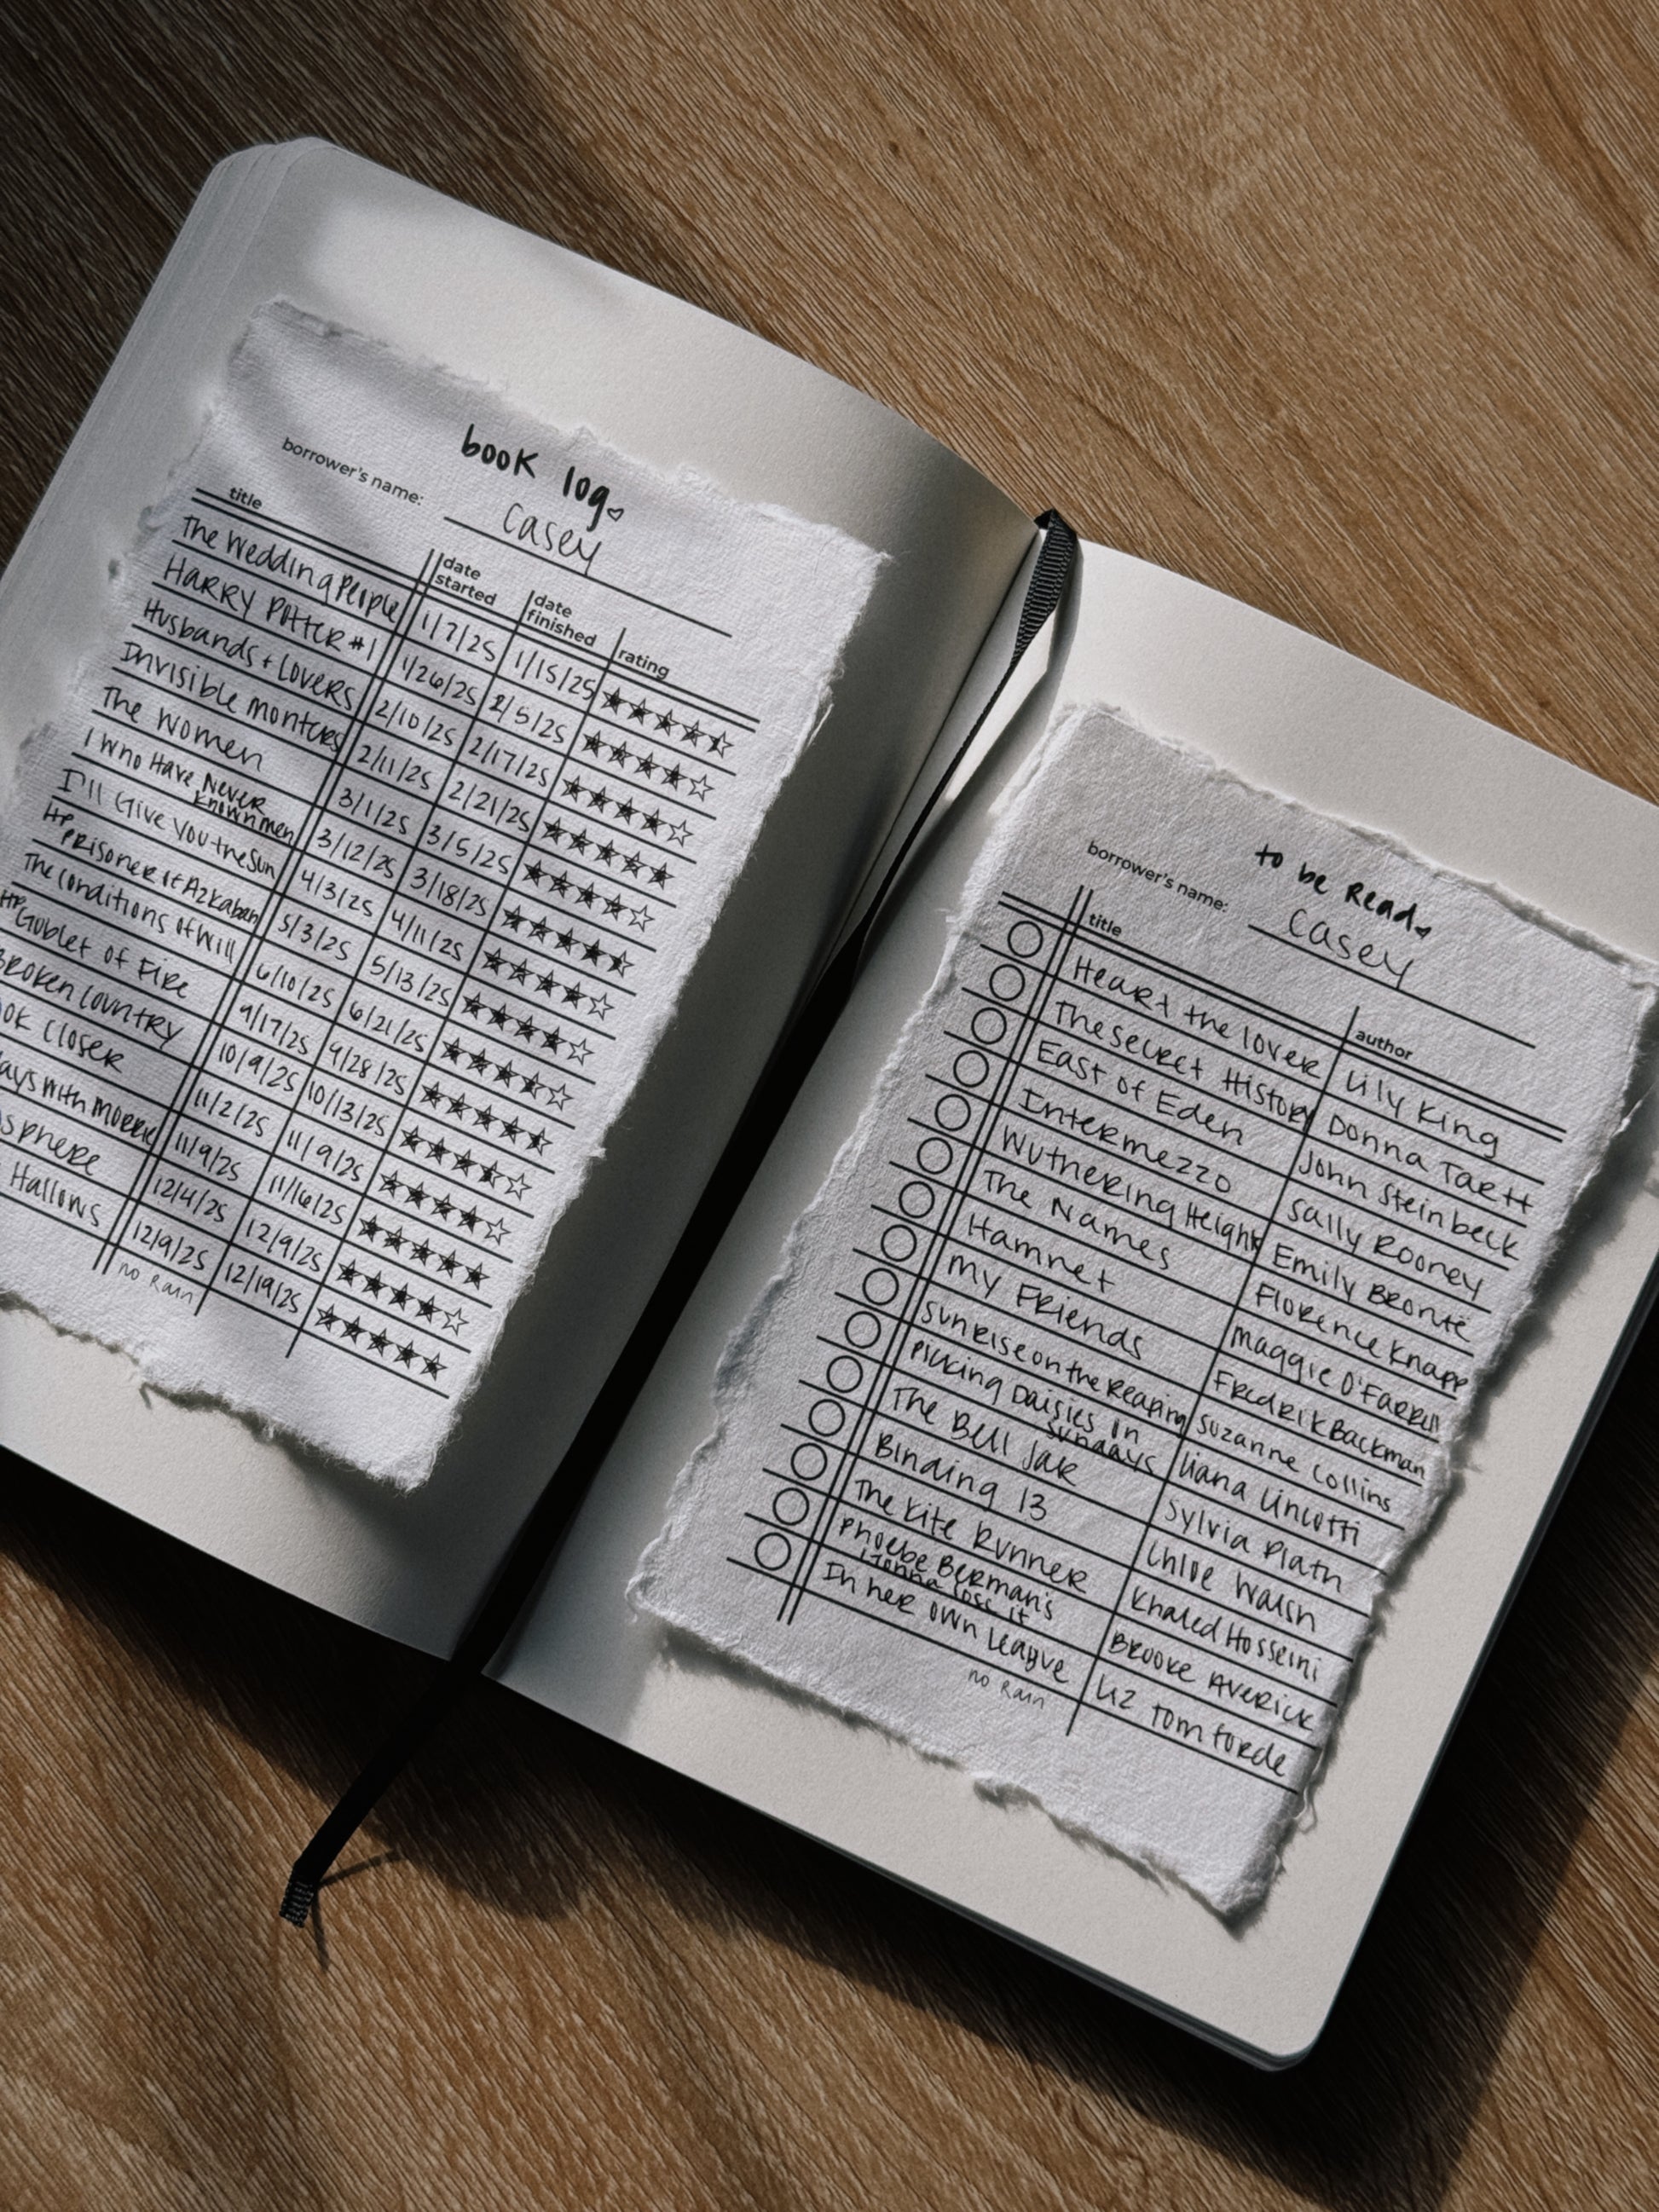 book log
borrower's name: Casey
title date started date finished rating
The Wedding People 1/7/25 1/15/25
HARRY POTTER #1 1/26/25 2/5/25
Husbands + Lovers 2/10/25 2/17/25
Invisible Montcrs 2/11/25 2/21/25
The Women 3/1/25 3/5/25
I Who Have Never Known men 3/12/25 3/18/25
I'll Give You the Sun 4/3/25 4/11/25
HP Prisoner of Azkaban 5/3/25 5/13/25
The Conditions of Will 6/10/25 6/21/25
HP Goblet of Fire 9/17/25 9/28/25
Broken Country 10/9/25 10/13/25
ook Closer 11/2/25 11/9/25
ays with Morrie 11/9/25 11/16/25
sphere 12/4/25 12/9/25
Hallows 12/9/25 12/19/25
no Rain
to be Read
borrower's name: Casey
title author
Heart the lover Lily King
The Secret History Donna Tartt
East of Eden John Steinbeck
Intermezzo Sally Rooney
Wuthering Heights Emily Brontë
The Names Florence Knapp
Hamnet Maggie O'Farrell
My Friends Fredrik Backman
Sunrise on the Reaping Suzanne Collins
Picking Daisies on Sundays Liana Cincotti
The Bell Jar Sylvia Plath
Binding 13 Chloe Walsh
The Kite Runner Khaled Hosseini
Phoebe Berman's Gonna Lose It Brooke Averick
In her own League Liz Tomforde
no Rain